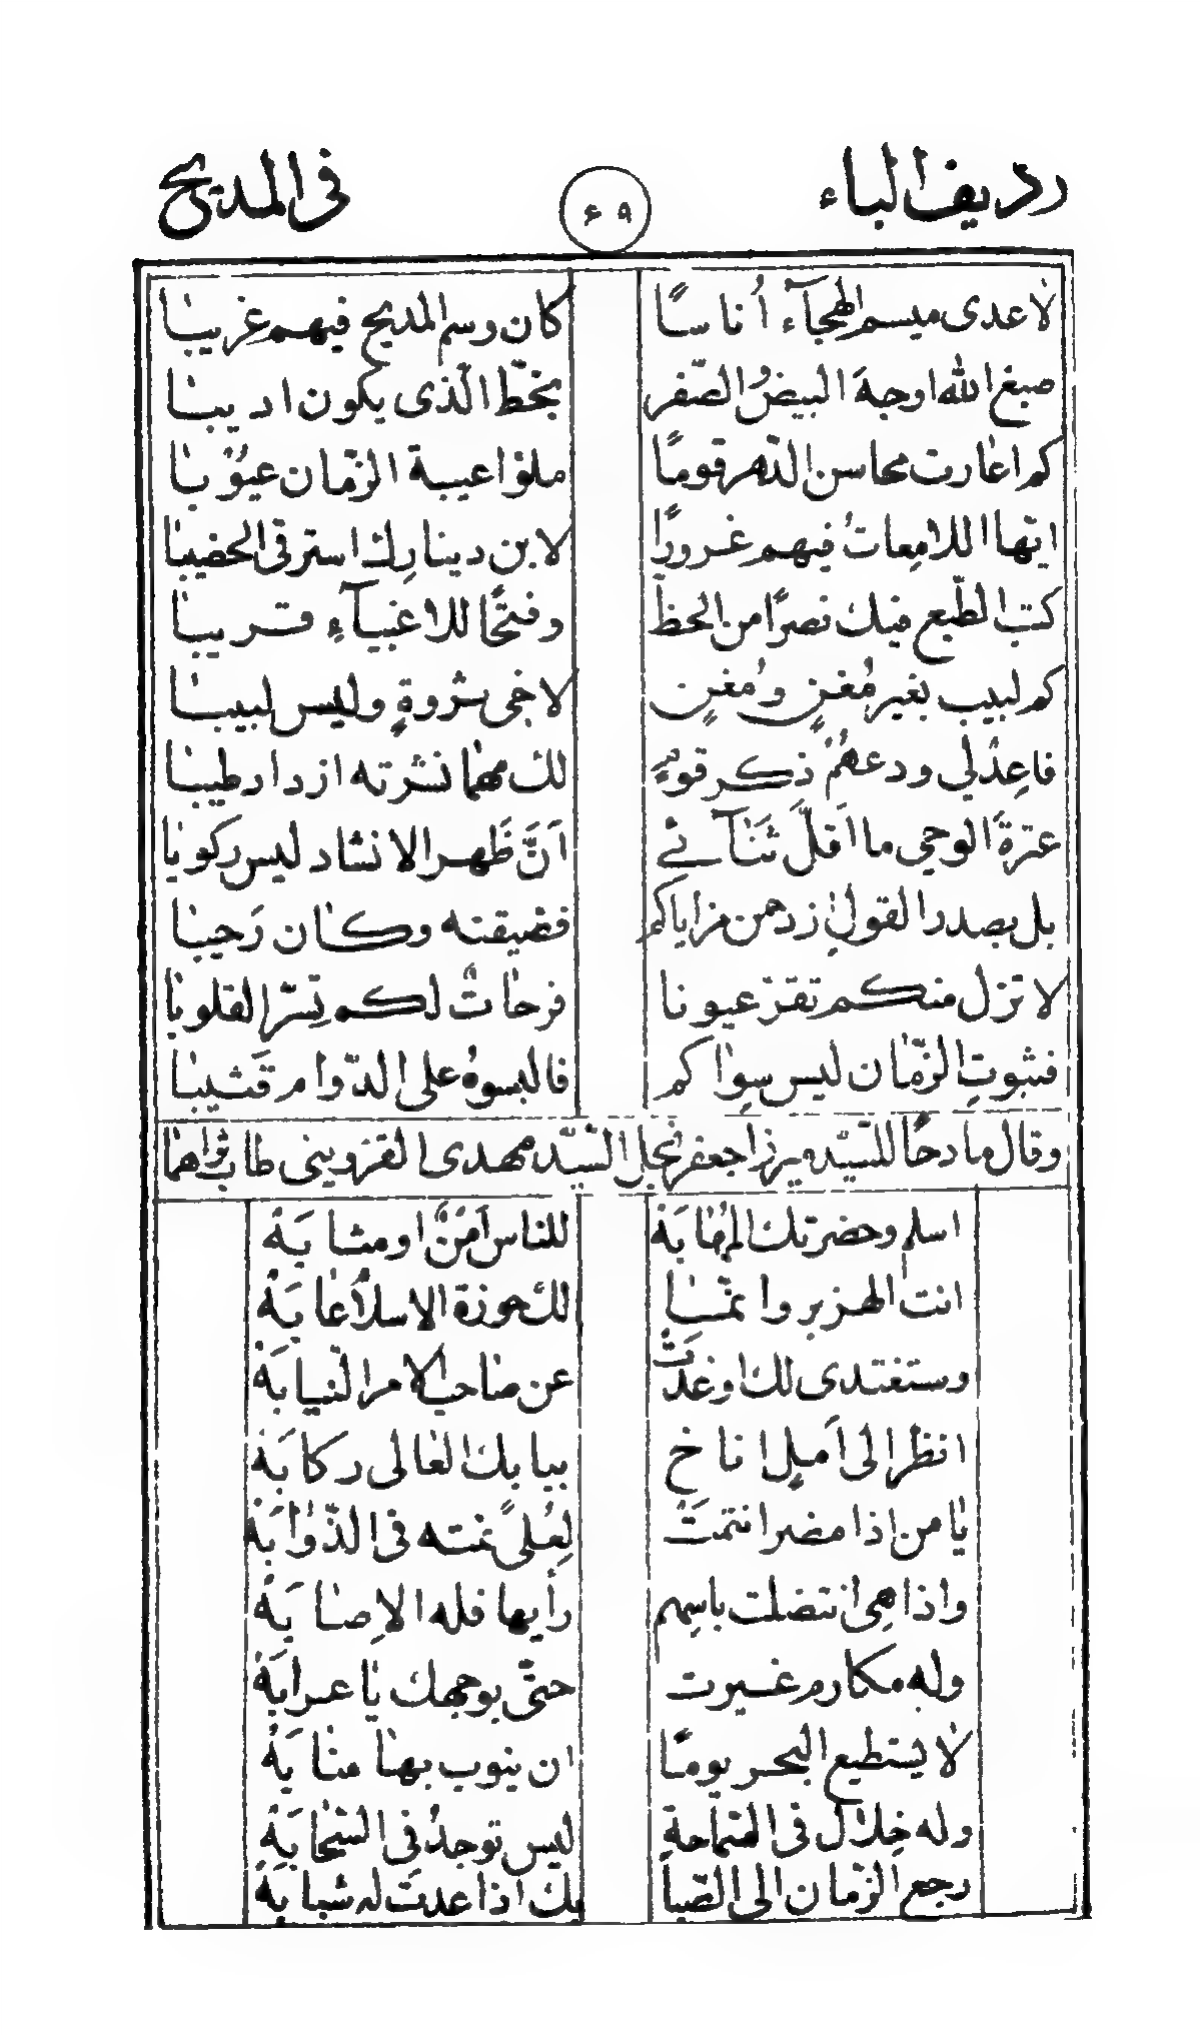 رديف الباء ٦٩ فى المديح
لا عدى ميسم الهجآء أُناسًا كان وسم المديح فيهم غريبا
صبغ الله اوجهَ البيض و الصّفر بخطّ الّذى يكون اديبا
كم اعارت محاسن الدّهر قومًا ملؤا عيبة الزّمان عيُوُبا
ايّها اللامعاتُ فيهم غرورًا لابن دينارِك استرقى الحضيبا
كتب الطّبع فيك نصرًا من الحظّ وفتحًا للاغنيآءِ قريبا
كم لبيب بغير مُغنٍ ومُغنٍ لاخى ثروةٍ وليس لبيبا
فاعِدْ لي ودعهُمُ ذكر قومٍ لك مهما نشرته ازداد طيبا
عترةَ الوحي ما اَقلّ ثَنآئے اَنَّ ظَهر الانشاد ليس ركوبا
بل بصدر القولِ ازدهمن مزاياكم فضيقنه وكان رَحيبا
لا تزل منكم تقرّ عيونا فرحاتٌ لكم تسِرّ القلوبا
فثبوتِ الزّمان ليس سِواكم فالبسوهُ على الدّوام قَشيبا
وقال مادحًا للسّيّد ميرزا جعفر نجل السّيّد مهدى القزوينى طاب ثراهما
اسلم وحضرتك المُهابَهْ للناس اَمنٌ او مثابَهْ
انت الهزبر وانّما لك حوزة الاسلام غابَهْ
وستغتدى لك او غدَتْ عن صاحب الامر النّيابَهْ
انظر الى اَملٍ اناخ ببابك العالى ركابَهْ
يا من اذا مضر انتمتْ لِعُلىً نمته فى الذّوابَهْ
واذا هى انتضلت باسهم رأيها فله الاِصابَهْ
وله مكارم غيرت حتّى بوجهك يا عرابَهْ
لا يستطيع البحر يومًا ان ينوب بها منابَهْ
وله خِلال فى السّماحةِ ليس توجدُ فى السّحابَهْ
رجع الزّمان الى الصّبا بك اذا عدت له شبابَهْ